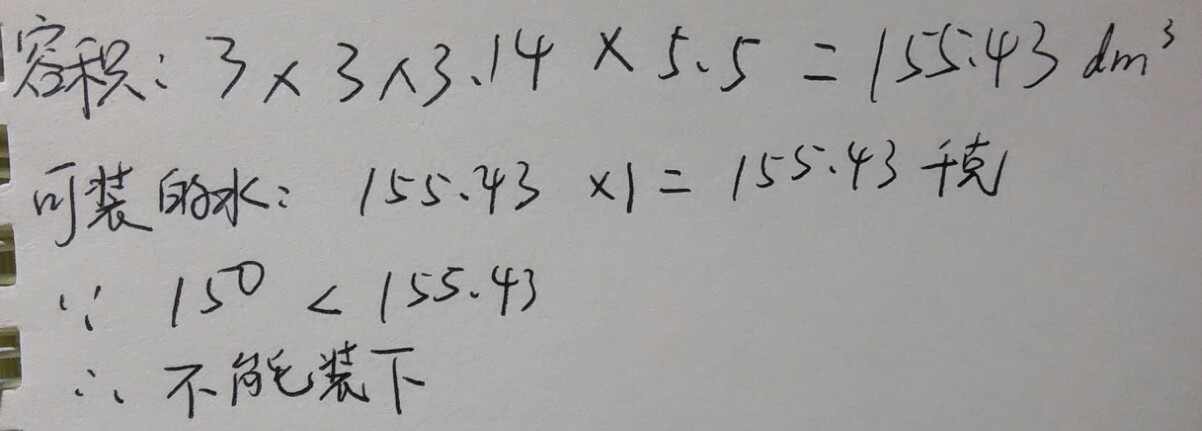 容积: 3×3×3.14×5.5=155.43 dm³
可装的水: 155.43×1=155.43千克
∵ 150<155.43
∴ 不能装下